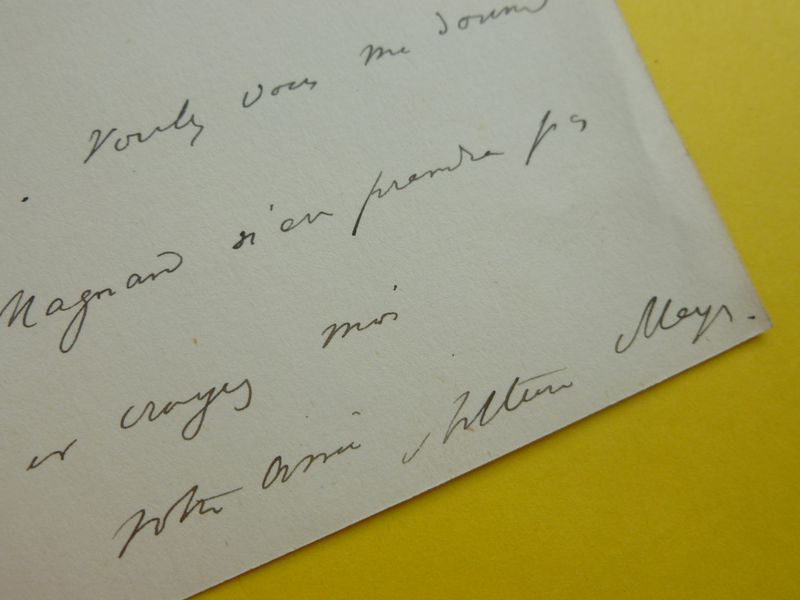 Voulez vous me donner
Magnard n'en prendra pas
et croyez moi
Votre ami Arthur Meyer.